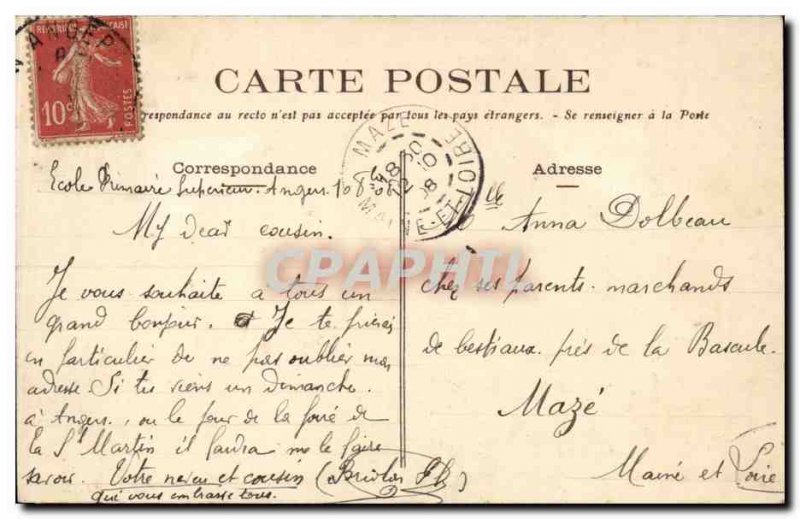 CARTE POSTALE
respondance au recto n'est pas acceptée par tous les pays étrangers. - Se renseigner à la Poste
10c POSTES
MAZE
Correspondance
Ecole Primaire Supérieur. Angers.
My dear cousin.
Je vous souhaite à tous un
grand bonjour. et Je te prierai
en particulier de ne pas oublier mon
adresse Si tu viens un dimanche.
à Angers. ou le jour de la foire de
la St Martin il faudra me le faire
savoir. Votre neveu et cousin
qui vous embrasse tous.
Adresse
Anna Dolbeau
chez ses parents. marchands
de bestiaux. près de la Bascule.
Mazé
Maine et Loire
CPARHTI